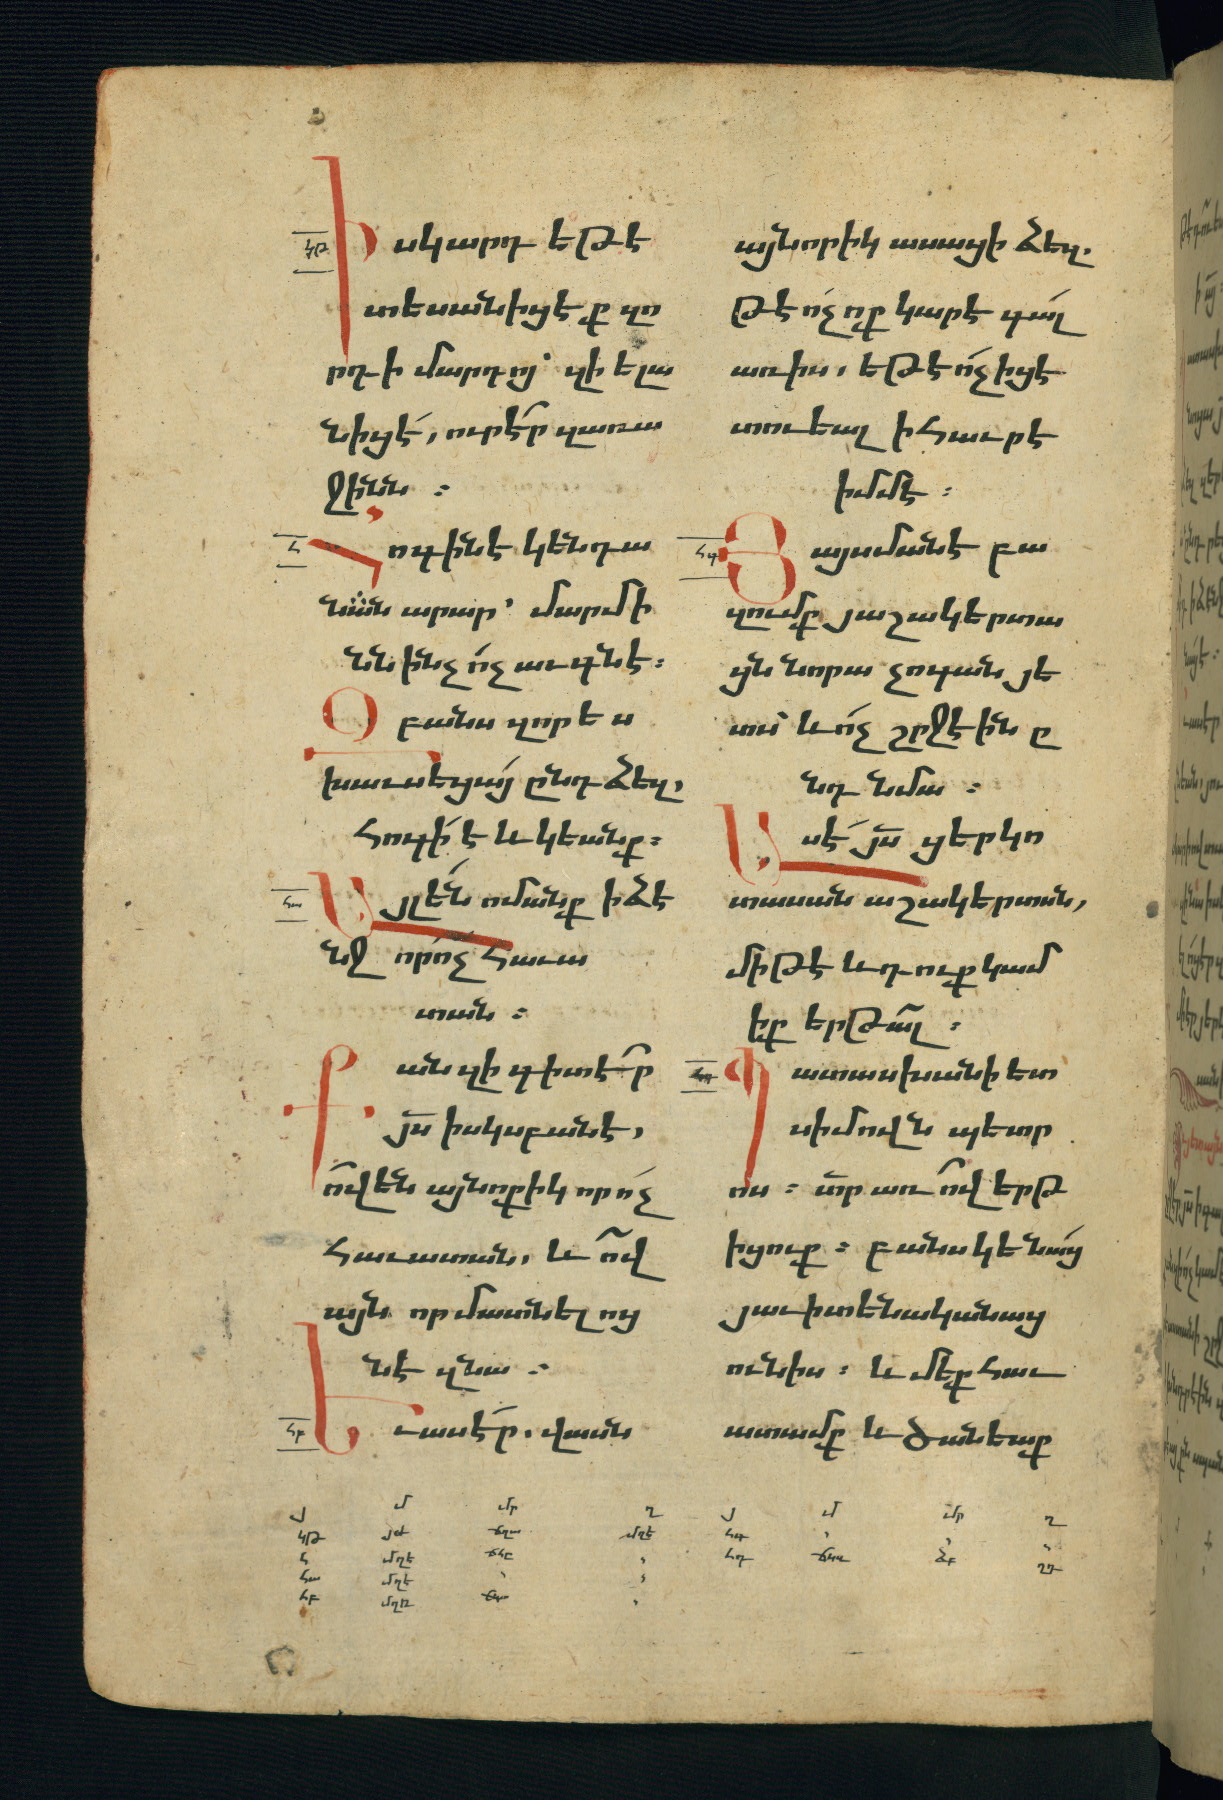 կթ
Իսկ արդ եթէ
տեսանիցէք զո
րդի մարդոյ՝ զի ելա
նիցէ, ուր էր զառա
ջինն ։
հ
Հոգին է կենդա
նան արար՝ մարմի
նն ինչ ոչ աւգնէ։
Զբանս զոր ես
խաւսեցայ ընդ ձեզ,
հոգի է և կեանք։
հա
Այլ են ոմանք ի ձէ
նջ որ ոչ հաւա
տան ։
Քանզի գիտէր
յս ի սկսբանէ,
ով են այնոքիկ որ ոչ
հաւատան, և ով
այն որ մատնելոց
նէ զնա ։
հբ
Եւ ասէր. վասն
այնորիկ ասացի ձեզ.
թէ ոչ ոք կարէ գալ
առ իս, եթէ ոչ իցէ
տուեալ ի հաւրէ
իմմէ ։
հգ
Յայսմանէ բա
զումք յաշակերտա
ցն նորա չոգան յե
տս՝ և ոչ շրջէին ը
նդ նմա ։
Ասէ յս ցերկո
տասան աշակերտսն,
միթէ և դուք կամ
իք երթալ ։
հդ
Պատասխանի ետ
սիմովն պետր
ոս ։ տր առ ով երթ
իցուք ։ բանս կենաց
յաւիտենականաց
ունիս ։ և մեք հաւ
ատամք և ծանեաք
յ մ մր ղ
կթ
հ մղե
հա մղե
հբ
յ մ մր ղ
հգ
հդ